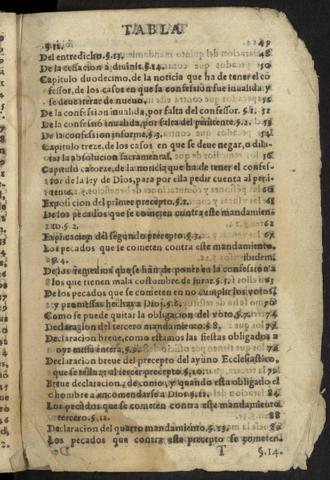 TABLA
§.12. 49
Del entredicho. §.13. 48
De la cessacion a diuinis. §.14. 50
Capitulo duodecimo, de la noticia que ha de tener el cõ
fessor, de los casos en que la confessiõ fue inualida y
se deue iterar de nueuo.
De la confession inualida, por falta del confessor. §.1. 52
De la confessiõ inualida, por falta del penitente. §.2.
De la confession informe. §.3. 54
Capitulo treze, de los casos en que se deue negar, o dila-
tar la absolucion sacramental. 56
Capitulo catorze, de la noticia que ha de tener el confes-
sor de la ley de Dios, para por ella pedir cuenta al peni-
tente. 60
Exposicion del primer precepto. §.1.
De los pecados que se cometen contra este mandamien-
to. §.2. 62
Explicacion del segundo precepto. §.3.
De los pecados que se cometen contra este mandamiento.
§.4. ibidem
De los remedios que se han de poner en la confession a
los que tienen mala costumbre, de jurar. §.5.
De los pecados que se cometen en no cumplir los votos
y promessas hechas a Dios. §.6. 70
Como se puede quitar la obligacion del voto. §.7. 74
Declaracion del tercero mandamiento. §.8. 79
Declaracion breue, como estamos las fiestas obligados a
oyr missa entera. §.9.
Declaracion breue del precepto del ayuno Ecclesiastico,
que se reduze al tercer precepto. §.10. 82
Breue declaracion, de como, y quando esta obligado el
hombre a encomendarse a Dios. §.11.
Los pecados que se cometen contra este mandamiento
tercero. §.12. 88
Declaracion del quarto mandamiento. §.13. 88
Los pecados que contra este precepto se cometen.
T §.14.